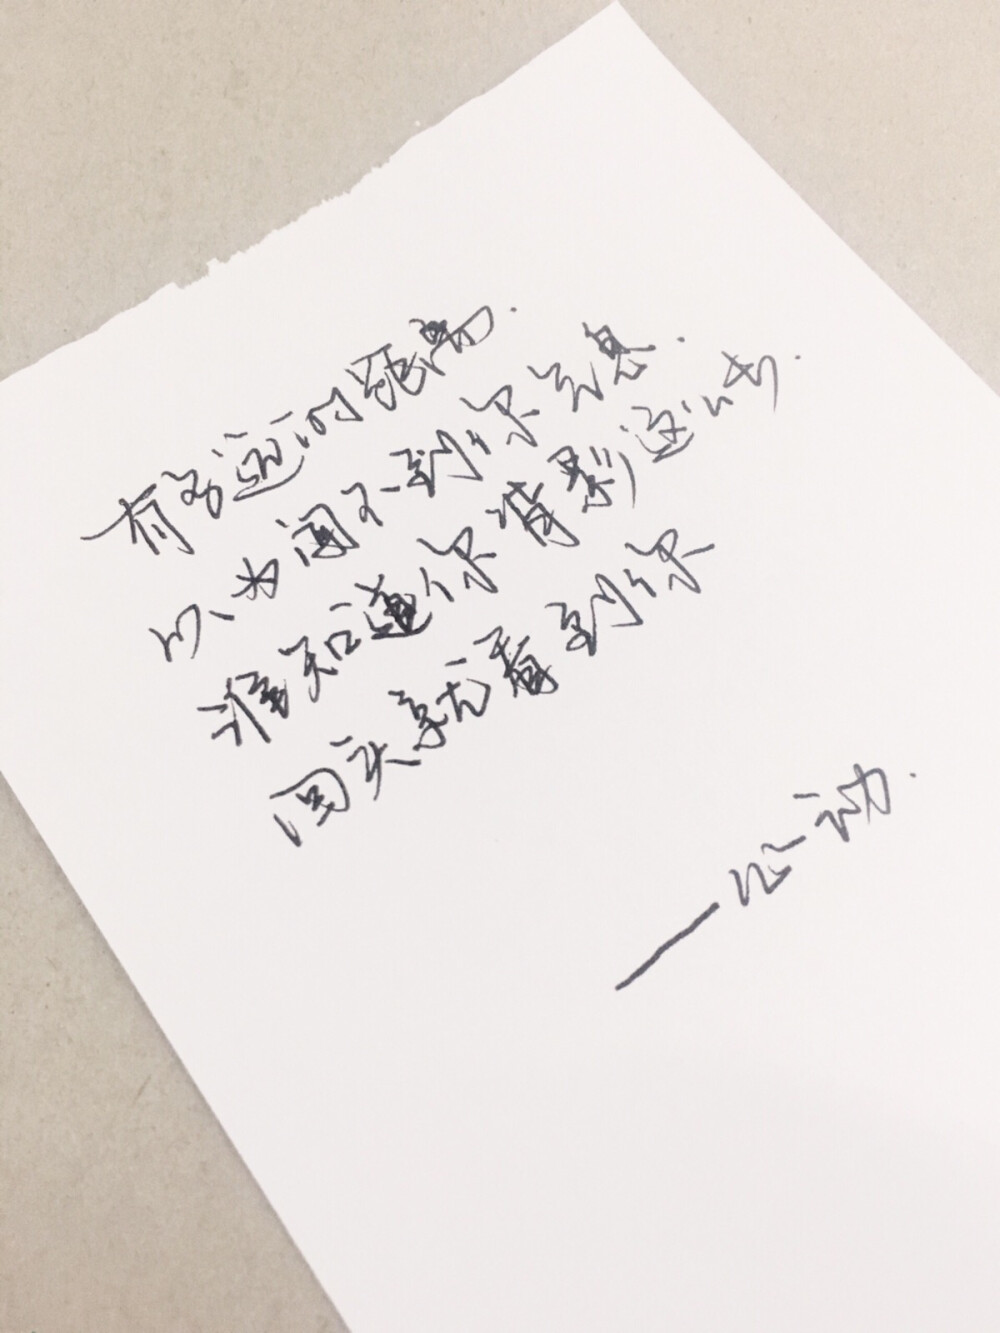 有多远的距离.
以为闻不到你气息.
谁知道你背影这么长.
回头就看到你
——心动.